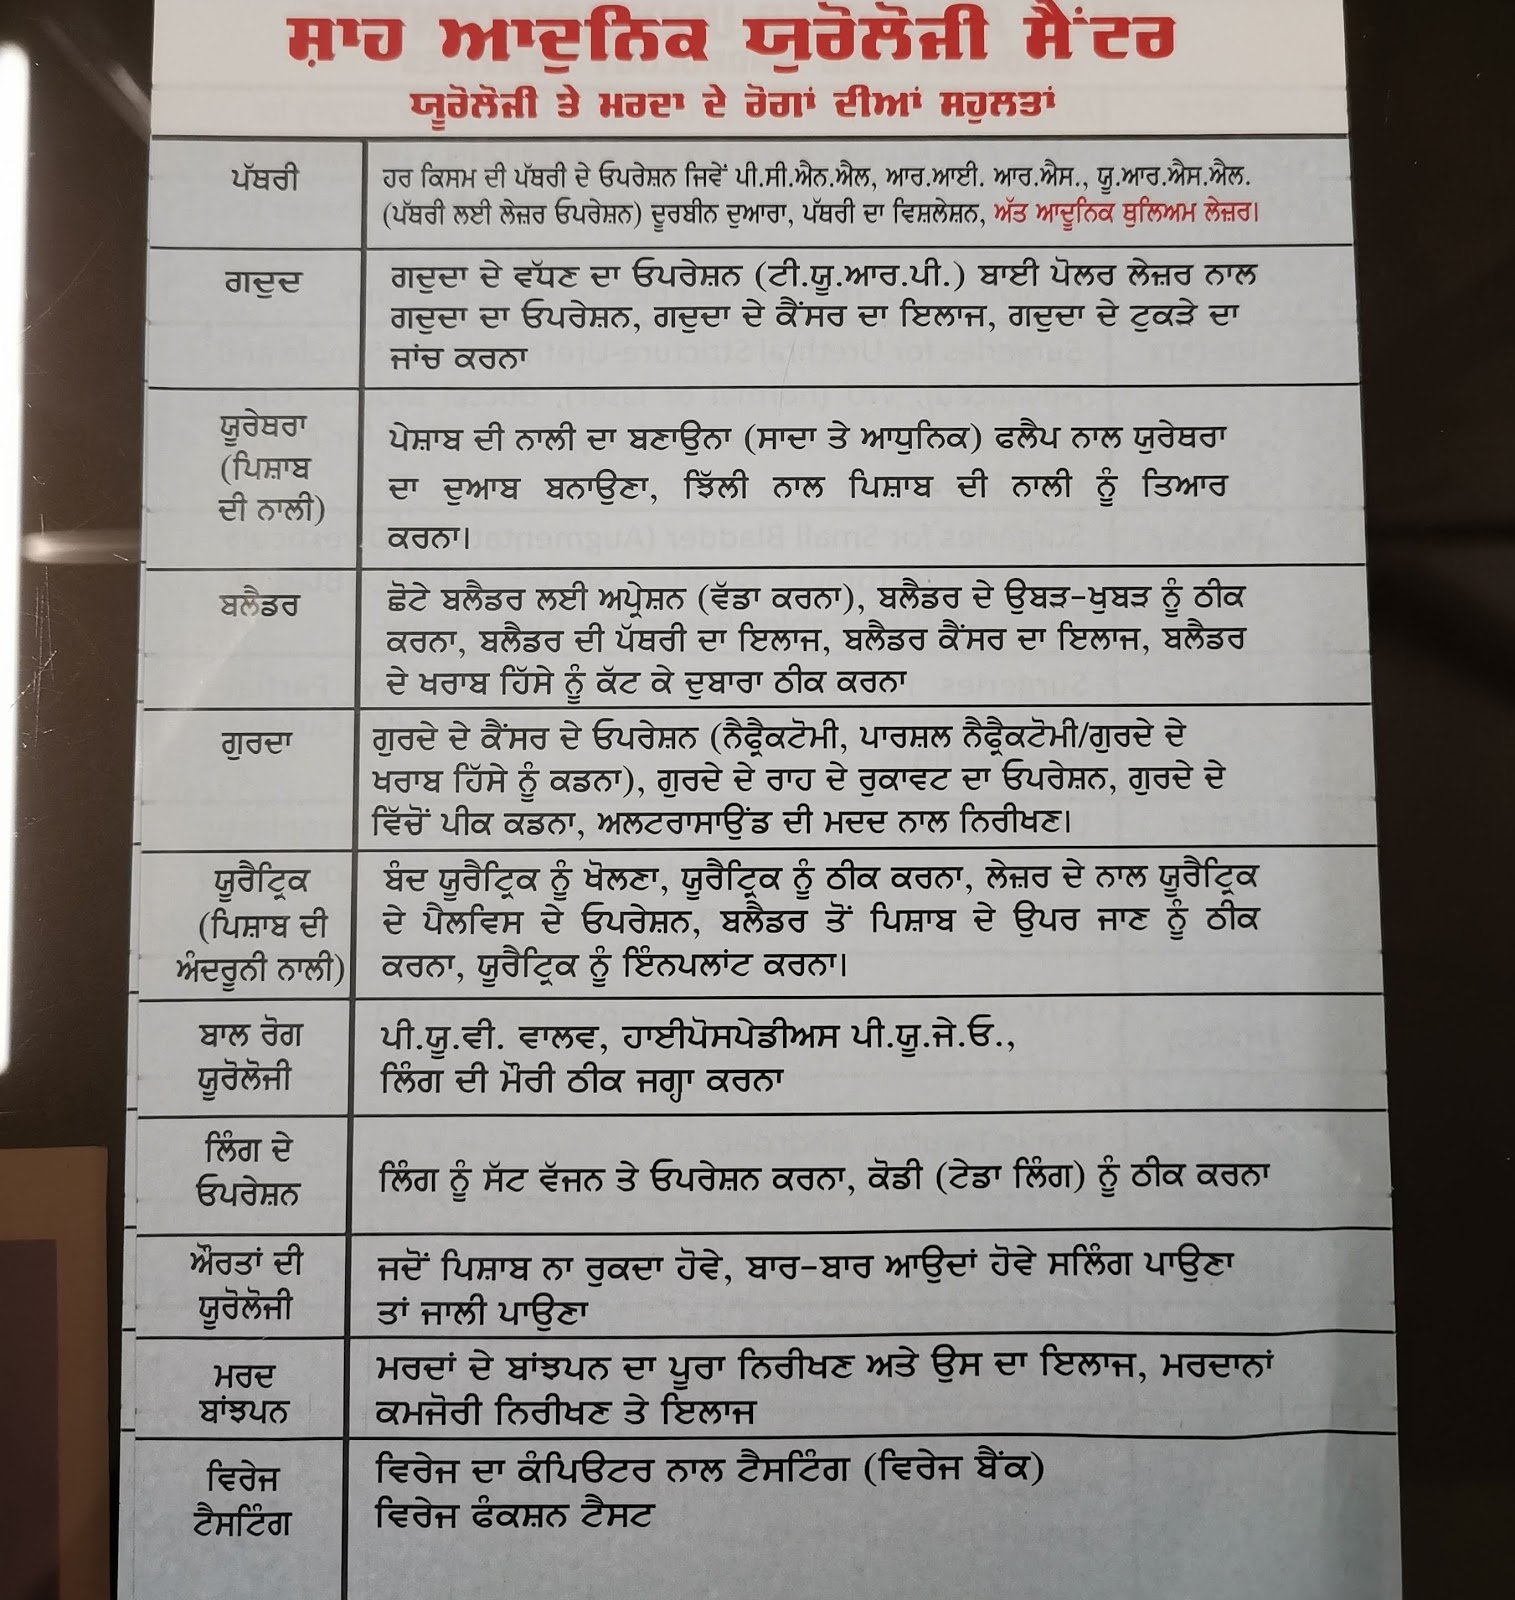 ਸ਼ਾਹ ਆਦੁਨਿਕ ਯੁਰੋਲੋਜੀ ਸੈਂਟਰ
ਯੂਰੋਲੋਜੀ ਤੇ ਮਰਦਾ ਦੇ ਰੋਗਾਂ ਦੀਆਂ ਸਹੂਲਤਾਂ
ਪੱਥਰੀ
ਹਰ ਕਿਸਮ ਦੀ ਪੱਥਰੀ ਦੇ ਓਪਰੇਸ਼ਨ ਜਿਵੇਂ ਪੀ.ਸੀ.ਐਨ.ਐਲ, ਆਰ.ਆਈ. ਆਰ.ਐਸ., ਯੂ.ਆਰ.ਐਸ.ਐਲ.
(ਪੱਥਰੀ ਲਈ ਲੇਜ਼ਰ ਓਪਰੇਸ਼ਨ) ਦੂਰਬੀਨ ਦੁਆਰਾ, ਪੱਥਰੀ ਦਾ ਵਿਸ਼ਲੇਸ਼ਨ, ਅੱਤ ਆਦੂਨਿਕ ਥੁਲਿਅਮ ਲੇਜ਼ਰ।
ਗਦੁਦ
ਗਦੁਦਾ ਦੇ ਵੱਧਣ ਦਾ ਓਪਰੇਸ਼ਨ (ਟੀ.ਯੂ.ਆਰ.ਪੀ.) ਬਾਈ ਪੋਲਰ ਲੇਜ਼ਰ ਨਾਲ
ਗਦੁਦਾ ਦਾ ਓਪਰੇਸ਼ਨ, ਗਦੁਦਾ ਦੇ ਕੈਂਸਰ ਦਾ ਇਲਾਜ, ਗਦੁਦਾ ਦੇ ਟੁਕੜੇ ਦਾ
ਜਾਂਚ ਕਰਨਾ
ਯੂਰੇਥਰਾ
(ਪਿਸ਼ਾਬ
ਦੀ ਨਾਲੀ)
ਪੇਸ਼ਾਬ ਦੀ ਨਾਲੀ ਦਾ ਬਣਾਉਨਾ (ਸਾਦਾ ਤੇ ਆਧੁਨਿਕ) ਫਲੈਪ ਨਾਲ ਯੁਰੇਥਰਾ
ਦਾ ਦੁਆਬ ਬਨਾਉਣਾ, ਝਿੱਲੀ ਨਾਲ ਪਿਸ਼ਾਬ ਦੀ ਨਾਲੀ ਨੂੰ ਤਿਆਰ
ਕਰਨਾ।
ਬਲੈਡਰ
ਛੋਟੇ ਬਲੈਡਰ ਲਈ ਅਪ੍ਰੇਸ਼ਨ (ਵੱਡਾ ਕਰਨਾ), ਬਲੈਡਰ ਦੇ ਉਬੜ-ਖੁਬੜ ਨੂੰ ਠੀਕ
ਕਰਨਾ, ਬਲੈਡਰ ਦੀ ਪੱਥਰੀ ਦਾ ਇਲਾਜ, ਬਲੈਡਰ ਕੈਂਸਰ ਦਾ ਇਲਾਜ, ਬਲੈਡਰ
ਦੇ ਖਰਾਬ ਹਿੱਸੇ ਨੂੰ ਕੱਟ ਕੇ ਦੁਬਾਰਾ ਠੀਕ ਕਰਨਾ
ਗੁਰਦਾ
ਗੁਰਦੇ ਦੇ ਕੈਂਸਰ ਦੇ ਓਪਰੇਸ਼ਨ (ਨੈਫ੍ਰੈਕਟੋਮੀ, ਪਾਰਸ਼ਲ ਨੈਫ੍ਰੈਕਟੋਮੀ/ਗੁਰਦੇ ਦੇ
ਖਰਾਬ ਹਿੱਸੇ ਨੂੰ ਕਡਨਾ), ਗੁਰਦੇ ਦੇ ਰਾਹ ਦੇ ਰੁਕਾਵਟ ਦਾ ਓਪਰੇਸ਼ਨ, ਗੁਰਦੇ ਦੇ
ਵਿੱਚੋਂ ਪੀਕ ਕਡਨਾ, ਅਲਟਰਾਸਾਉਂਡ ਦੀ ਮਦਦ ਨਾਲ ਨਿਰੀਖਣ।
ਯੂਰੈਟ੍ਰਿਕ
(ਪਿਸ਼ਾਬ ਦੀ
ਅੰਦਰੂਨੀ ਨਾਲੀ)
ਬੰਦ ਯੂਰੈਟ੍ਰਿਕ ਨੂੰ ਖੋਲਣਾ, ਯੂਰੈਟ੍ਰਿਕ ਨੂੰ ਠੀਕ ਕਰਨਾ, ਲੇਜ਼ਰ ਦੇ ਨਾਲ ਯੂਰੈਟ੍ਰਿਕ
ਦੇ ਪੈਲਵਿਸ ਦੇ ਓਪਰੇਸ਼ਨ, ਬਲੈਡਰ ਤੋਂ ਪਿਸ਼ਾਬ ਦੇ ਉਪਰ ਜਾਣ ਨੂੰ ਠੀਕ
ਕਰਨਾ, ਯੂਰੈਟ੍ਰਿਕ ਨੂੰ ਇੰਨਪਲਾਂਟ ਕਰਨਾ।
ਬਾਲ ਰੋਗ
ਯੂਰੋਲੋਜੀ
ਪੀ.ਯੂ.ਵੀ. ਵਾਲਵ, ਹਾਈਪੋਸਪੇਡੀਅਸ ਪੀ.ਯੂ.ਜੇ.ਓ.,
ਲਿੰਗ ਦੀ ਮੌਰੀ ਠੀਕ ਜਗ੍ਹਾ ਕਰਨਾ
ਲਿੰਗ ਦੇ
ਓਪਰੇਸ਼ਨ
ਲਿੰਗ ਨੂੰ ਸੱਟ ਵੱਜਨ ਤੇ ਓਪਰੇਸ਼ਨ ਕਰਨਾ, ਕੋਡੀ (ਟੇਡਾ ਲਿੰਗ) ਨੂੰ ਠੀਕ ਕਰਨਾ
ਔਰਤਾਂ ਦੀ
ਯੂਰੋਲੋਜੀ
ਜਦੋਂ ਪਿਸ਼ਾਬ ਨਾ ਰੁਕਦਾ ਹੋਵੇ, ਬਾਰ-ਬਾਰ ਆਉਦਾਂ ਹੋਵੇ ਸਲਿੰਗ ਪਾਉਣਾ
ਤਾਂ ਜਾਲੀ ਪਾਉਣਾ
ਮਰਦ
ਬਾਂਝਪਨ
ਮਰਦਾਂ ਦੇ ਬਾਂਝਪਨ ਦਾ ਪੂਰਾ ਨਿਰੀਖਣ ਅਤੇ ਉਸ ਦਾ ਇਲਾਜ, ਮਰਦਾਨਾਂ
ਕਮਜੋਰੀ ਨਿਰੀਖਣ ਤੇ ਇਲਾਜ
ਵਿਰੇਜ
ਟੈਸਟਿੰਗ
ਵਿਰੇਜ ਦਾ ਕੰਪਿਓਟਰ ਨਾਲ ਟੈਸਟਿੰਗ (ਵਿਰੇਜ ਬੈਂਕ)
ਵਿਰੇਜ ਫੰਕਸ਼ਨ ਟੈਸਟ